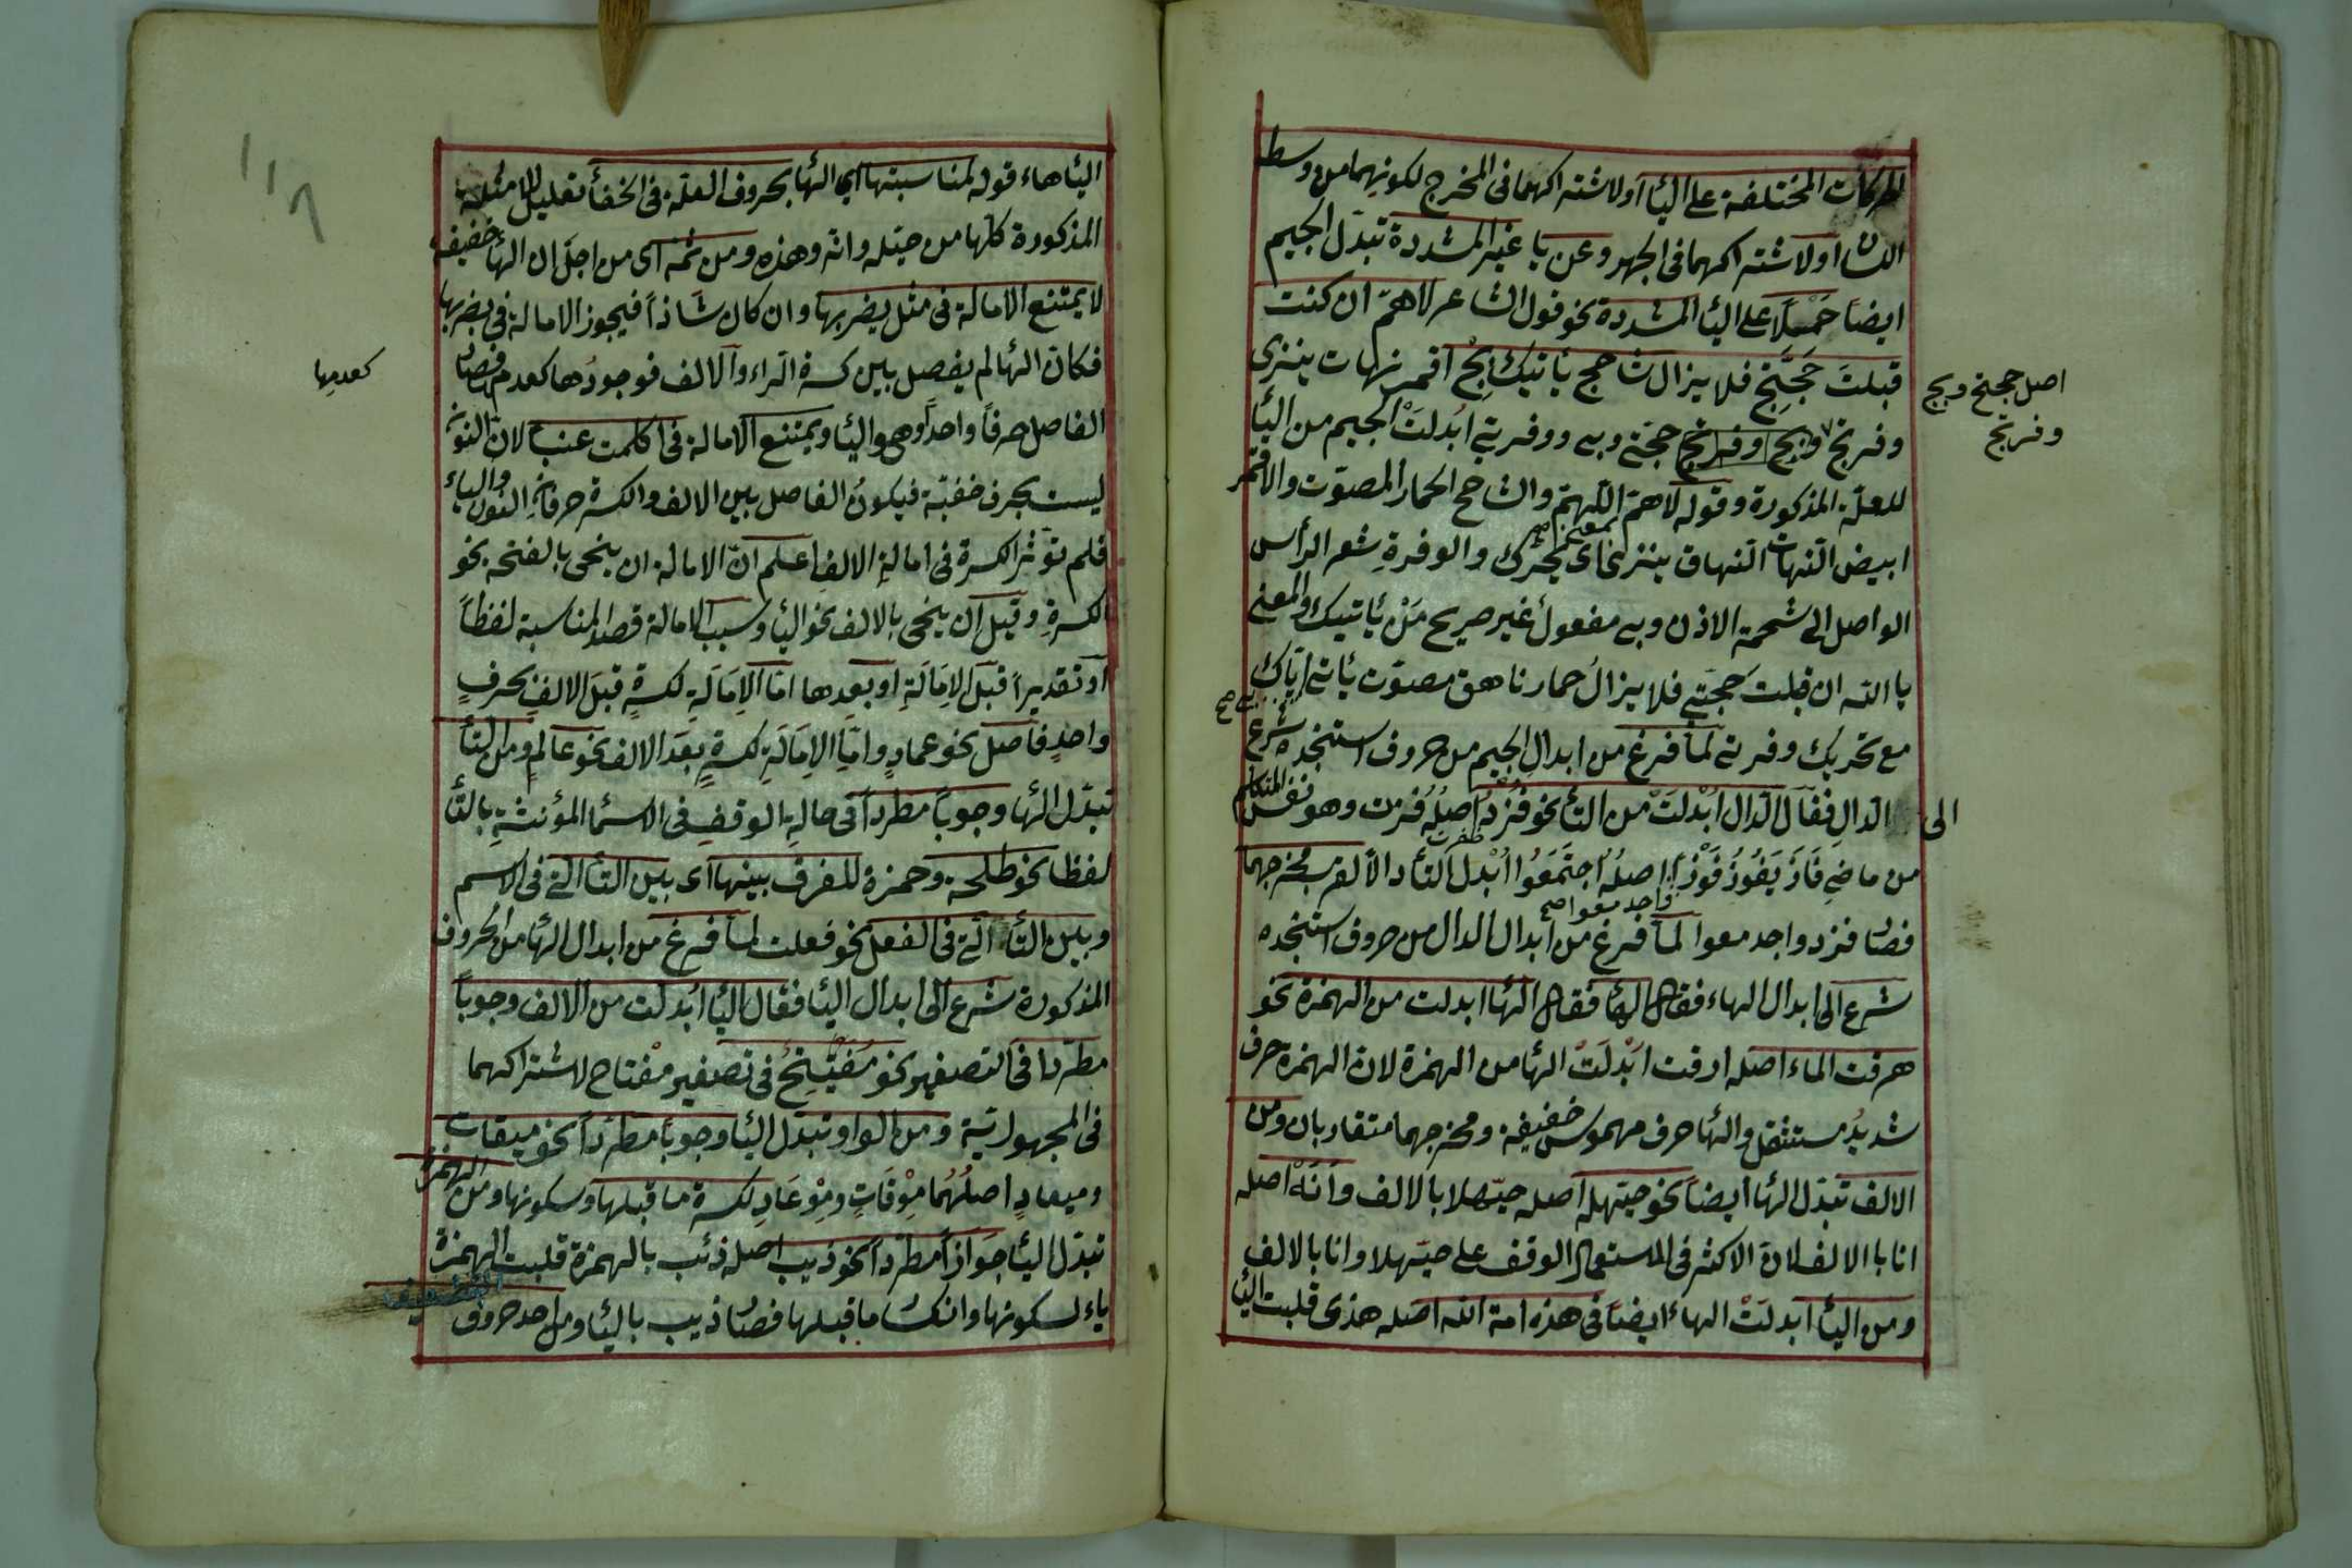 الحركات المختلفة على اليا او لاشتراكهما فى المخرج لكونهما من وسط
اللسان او لاشتراكهما فى الجهر وعن يا غير المشددة تبدل الجيم
ايضاً حَمْلًا على اليا المشددة نحو قول الشاعر لاهمّ ان كنت
قبلتَ حَجَّتِجْ فلا يزال شاحج ياتيك بِجْ اقمر نهات ينزى
وفرتج وبج وفرتج حجتى وبى ووفرتى ابدلَتْ الجيم من اليا
اصل حجتج وبج
وفرتج
للعلة المذكورة وقوله لاهمّ اللّهمّ والشاحج الحمار المصوّت والاقمر
ابيض النهات النهاق ينزى بمعنى يحرك والوفرةِ شعر الرأس
الواصل الى شحمة الاذن وبى مفعول غير صريح مَنْ ياتيك والمعنى
يا الله ان قبلت حجّتى فلا يزالُ حمار ناهق مصوّت ياتى اياك
مع تحريك وفرتى لما فرغ من ابدالِ الجيم من حروف استنجده شرع
الى الدالِ فقال الدال ابْدلَتْ من التا نحو فُزْدُ اصلُهُ فزت وهو نفس المتكلم
من ماضى فَازَ يَفُوزُ فَوْزاً اصلُهُ اجتَمَعُوا ابْدل التا دالا لقرب مخرجهما
واجدمعوا صح
فصار فزد واجدمعوا لما فرغ من ابدال الدال من حروف استنجده
شرع الى ابدال الهاء فقال الها فقال الها ابدلت من الهمزة نحو
هرقت الماء اصله ارقت ابْدلَتْ الها من الهمزة لان الهمزة حرف
شديدُ مستثقل والها حرف مهموس خفيفة ومخرجهما متقاربان ومن
الالف تبدل الها ايضاً نحو حيّهله اصله حيّهلا بالالف وَاَنَهْ اصله
انا با الالف لان الاكثر فى المستعمال الوقف على حيّهلا وانا بالالف
ومن اليا ابدلَتْ الهاء ايضاً فى هذه امة الله اصله هذى قلبت اليا
الياهاء قوله لمناسبتها اى الها بحروف العلة فى الخفا تعليل للامثلة
المذكورة كلها من حيّله وانه وهذهِ ومن ثمه اى من اجل ان الها خفيفة
لا يمتنع الامالة فى مثل يضربها وان كان شاذاً فيجوز الامالة فى يضربها
فكان الها لم يفصل بين كسرة الراء والالف فوجودُها كعدم فصار
كعدمها
الفاصل حرفاً واحداً وهو اليا ويمتنع الامالة فى اكلت عنبا لان النون
ليست بحرف خفيّة فيكون الفاصل بين الالف والكسرة حرفان النون والباء
فلم تؤثر الكسرة فى امالةِ الالفِ اعلم انّ الامالة ان ينحى بالفتحه نحو
الكسرةِ وقيل ان ينحى بالالف نحو اليا وسبب الامالة قصد المناسبة لفظاً
او تقديراً قبل الاِمَالَةِ او بعدها امّا الاِمَالَةِ لكسرةٍ قبلَ الالفِ بحرفٍ
واحدٍ فاصل نحو عمادٍ وامّا الاِمَالَةِ لكسرةٍ بعدَ الالف نحو عالم ومن التا
تبدل الها وجوباً مطرداً فى حالةِ الوقف فى الاسما المؤنثةِ بالتا
لفظا نحو طلحة وحمزة للفرق بينها اى بين التا التى فى الاسم
وبين التا التى فى الفعل نحو فعلت لما فرغ من ابدال الها من الحروف
المذكورة شرع الى ابدال اليا فقال اليا ابدلت من الالف وجوباً
مطردا فى التصغير نحو مُفَيْتِيْحُ فى تصغير مفْتاح لاشتراكهما
فى المجهوليّة ومن الواو تبدل اليا وجوباً مطرداً نحو ميقات
وميعادٍ اصلُهُما مِوْقاتٍ ومِوْعَادٍ لكسرة ما قبلها وسكونها ومن الهمزة
تبدل اليا جوازاً مطرداً نحو ذيب اصله ذئب بالهمزة قلبت الهمزة
ياء لسكونها وانكسار ما قبلها فصار ذيب باليا ومن احد حروف
التضعيف